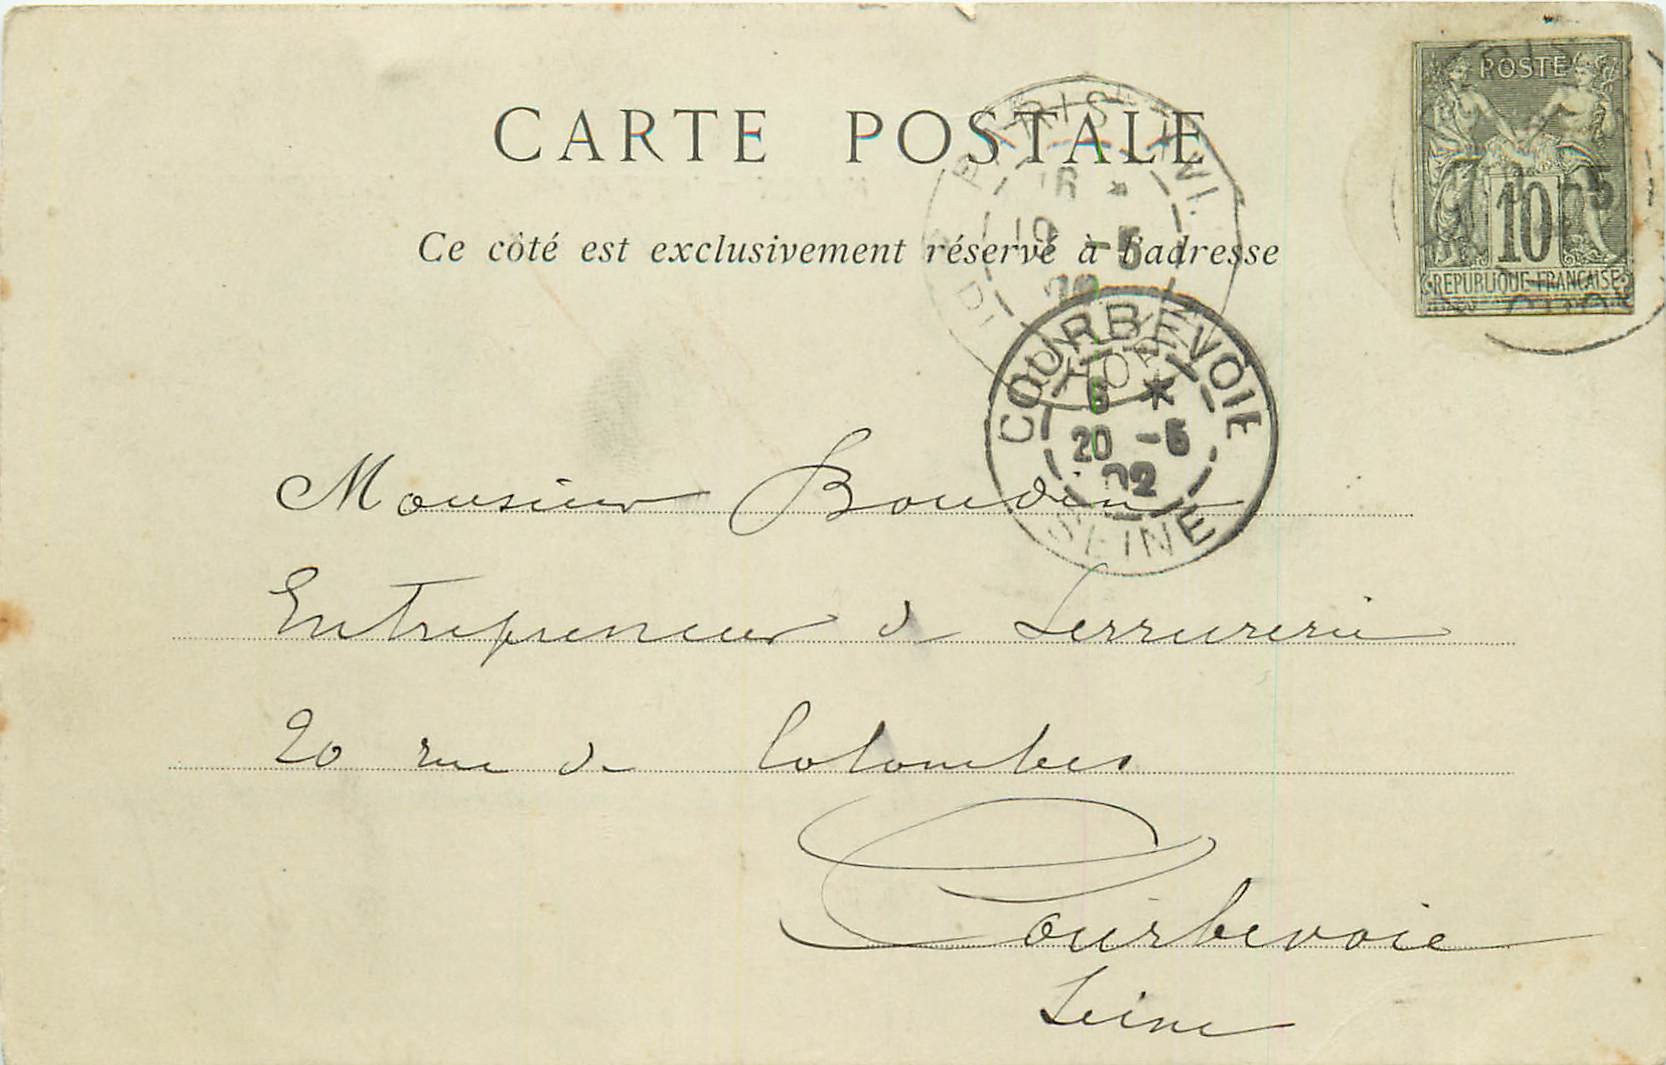 CARTE POSTALE
Ce côté est exclusivement réservé à l'adresse
POSTE
10
REPUBLIQUE FRANCAISE
PARIS
19 -5
COURBEVOIE
6 *
20 -5
02
SEINE
Monsieur Boudin
Entrepreneur de Serrurerie
20 rue de Colombes
Courbevoie
Seine